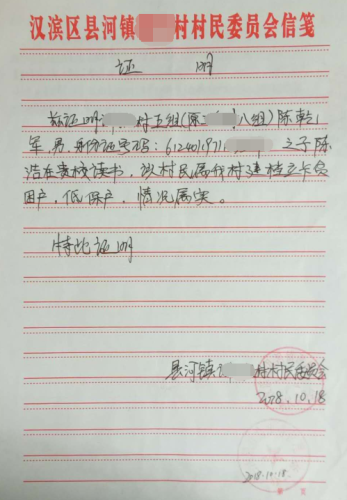 汉滨区县河镇 村村民委员会信笺
证 明
兹证明 村五组(原 八组)陈乾
军 男 身份证号码:6124011971 之子陈
浩在贵校读书,该村民属我村建档立卡贫
困户,低保户,情况属实。
特此证明
县河镇 村村民委员会
2018.10.18
2018.10.18.
第 页